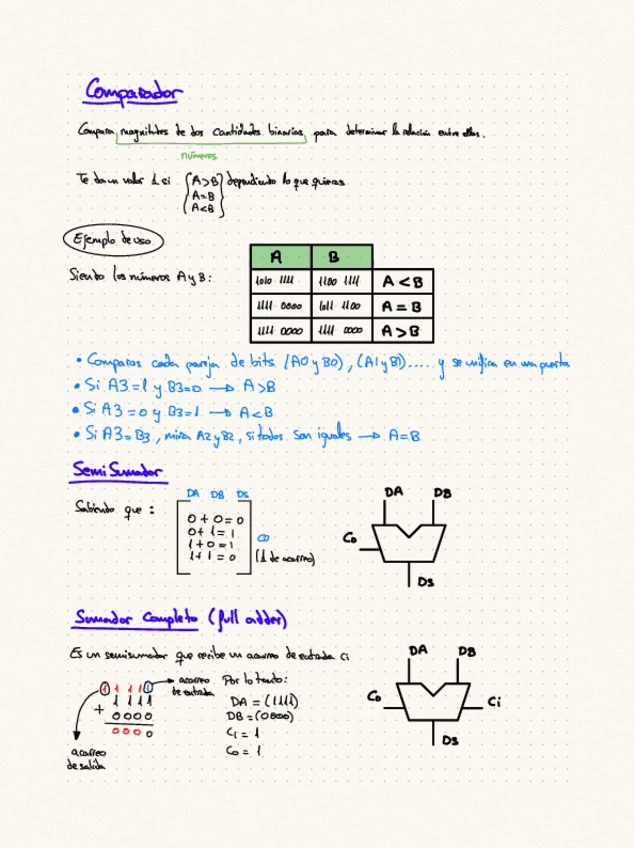 Comparador
Compara magnitudes de dos cantidades binarias para determinar la relación entre ellas.
números
Te da un valor 1 si { A>B } dependiendo lo que quieras
A=B
A<B
Ejemplo de uso
Siendo los números A y B:
A B
1010 1111 1100 1111 A < B
1111 0000 1011 1100 A = B
1111 0000 1111 0000 A > B
• Comparas cada pareja de bits (A0 y B0), (A1 y B1).... y se unifica en una puerta
• Si A3=1 y B3=0 → A>B
• Si A3=0 y B3=1 → A<B
• Si A3=B3, mira A2 y B2, si todos son iguales → A=B
SemiSumador
Sabiendo que:
DA DB DS
0 + 0 = 0
0 + 1 = 1
1 + 0 = 1
1 + 1 = 0
CO
(1 de acarreo)
DA DB
Co
Ds
Sumador Completo (full adder)
Es un semisumador que recibe un acarreo de entrada Ci
1 1 1 1 1 → acarreo de entrada
1 1 1 1
+
0 0 0 0
0 0 0 0
acarreo
de salida
Por lo tanto:
DA = (1111)
DB = (0000)
Ci = 1
Co = 1
DA DB
Co Ci
Ds